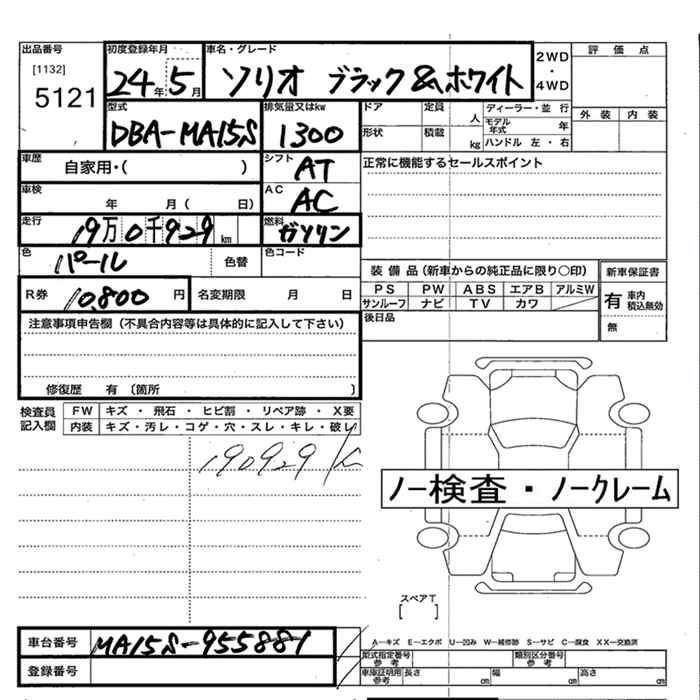 出品番号 初度登録年月 車名・グレード 2WD・4WD 評価点
[1132]
5121 24年5月 ソリオ ブラック&ホワイト
型式 排気量又はkw ドア 定員 人 ディーラー・並行 外装 内装
DBA-MA15S 1300 形状 積載 kg モデル年式 年 ハンドル 左・右
車歴 自家用・( ) シフト AT 正常に機能するセールスポイント
車検 年 月( 日) AC AC
走行 19万0千929km 燃料 ガソリン
色 パール 色替 色コード
装備品(新車からの純正品に限り○印) 新車保証書
R券 10,800円 名変期限 月 日 PS PW ABS エアB アルミW 有 車内積込無効
サンルーフ ナビ TV カワ 無
注意事項申告欄(不具合内容等は具体的に記入して下さい) 後日品
修復歴 有 〔箇所 〕
検査員記入欄 FW キズ・飛石・ヒビ割・リペア跡・X要
内装 キズ・汚レ・コゲ・穴・スレ・キレ・破レ
190929
ノー検査・ノークレーム
スペアT
[ ]
車台番号 MA15S-955881 A—キズ E—エクボ U—凹み W—補修跡 S—サビ C—腐食 XX—交換済
登録番号 型式指定番号 参考 類別区分番号 参考
車庫証明用 参考 長さ cm 幅 cm 高さ cm